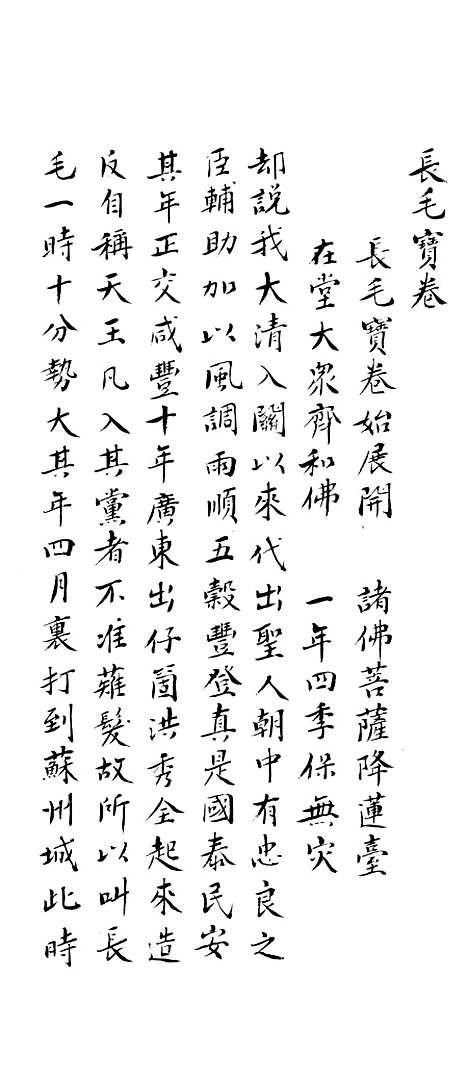 長毛寶卷
長毛寶卷始展開　諸佛菩薩降蓮臺
在堂大衆齊和佛　一年四季保無灾
却說我大清入關以來代出聖人朝中有忠良之
臣輔助加以風調雨順五穀豐登真是國泰民安
其年正交咸豐十年廣東出仔箇洪秀全起來造
反自稱天王凡入其黨者不准薙髮故所以叫長
毛一時十分勢大其年四月裏打到蘇州城此時